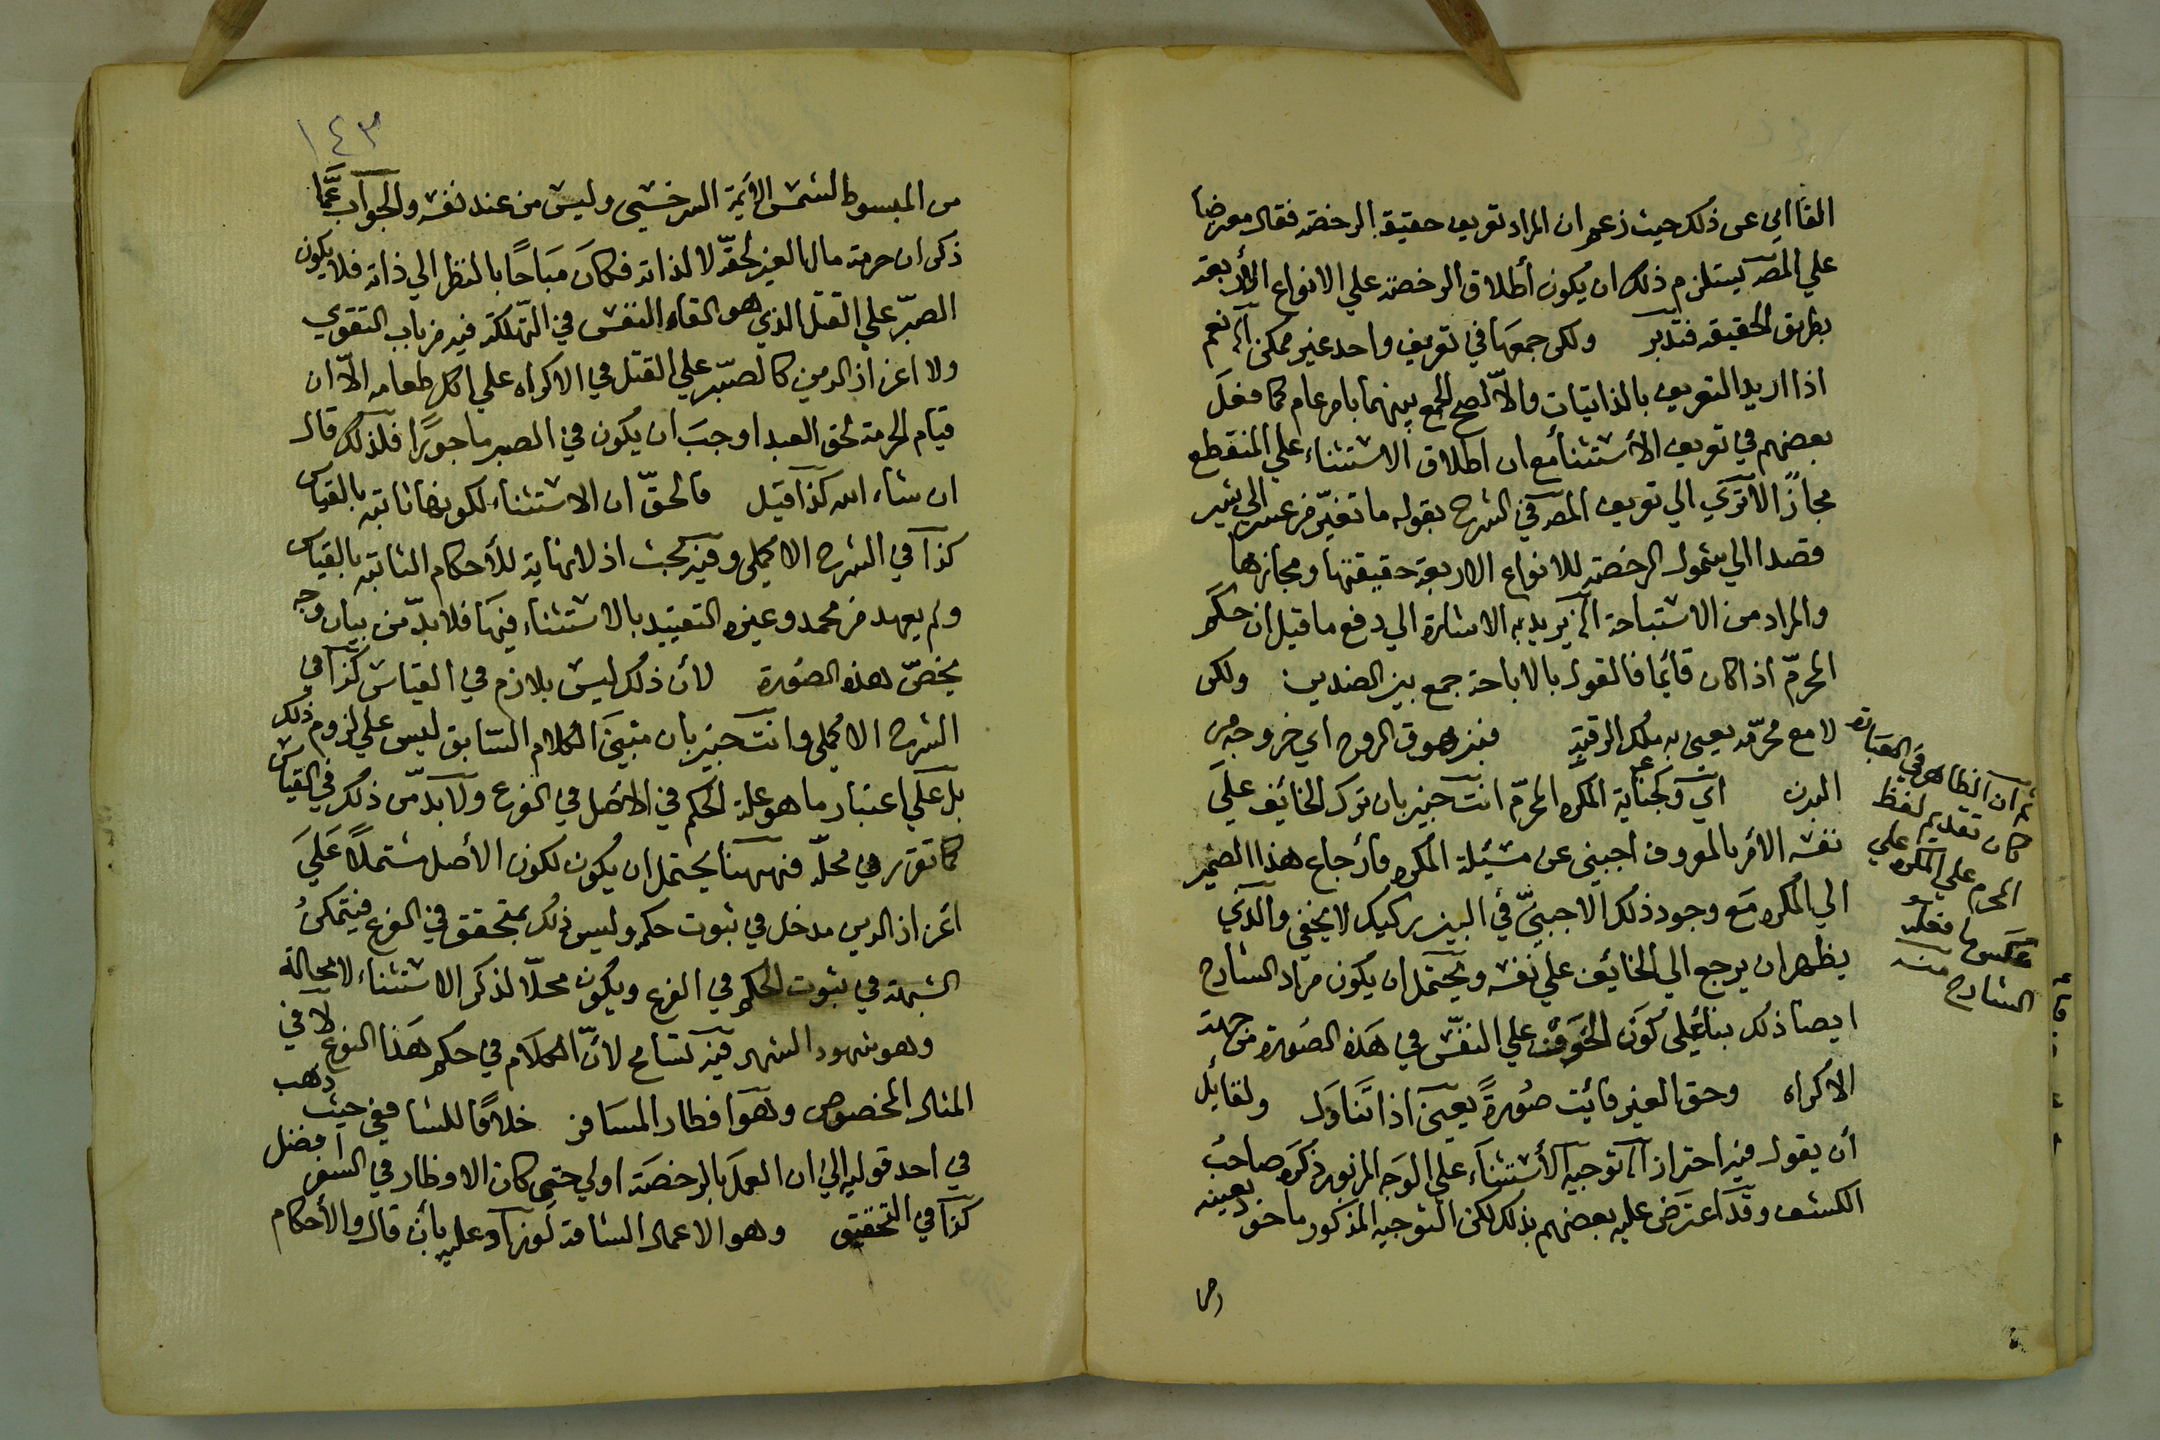 القاآني عن ذلك حيث زعم ان المراد تعريف حقيقة الرخصة فقال معرضا
علي المصـ يستلزم ذلك ان يكون أطلاق الرخصة علي الانواع الأربعة
بطريق الحقيقة فتدبر ولكن جمعها في تعريف واحد غير ممكن آه نعم
اذا اريد التعريف بالذاتيات والاّ لصح الجمع بينهما بامر عام كما فعل
بعضهم في تعريف الأستثنا مع ان اطلاق الاستثناء علي المنقطع
مجازًا الا تري الي تعريف المصـ في الشرح بقوله ما تغيّر من عسر الي يسر
قصدا الي شمول الرخصة للانواع الاربعة حقيقتها ومجازها
والمراد من الاستباحة آه يريد به الاشارة الي دفع ما قيل ان حكم
المحرّم اذا كان قائما فالقول بالاباحة جمع بين الضدين ولكن
لا مع محرّمه يعني به ملك الرقبة فينزهوق الروح اي خروجه من
البدن اي وكجناية المكره المحرّم انت خبير بان ترك الخائف علي
نفسه الأمر بالمعروف اجنبي عن مسئلة المكره فأرجاع هذا الضمير
الي المكره مع وجود ذلك الاجنبيّ في البين ركيك لا يخفي والذي
يظهر ان يرجع الي الخائف علي نفسه ويحتمل ان يكون مراد الشارح
ايضا ذلك بناءً علي كون الخوف علي النفس في هذه الصورة من جهة
الاكراه وحق الغير فائت صورةً يعني اذا تناول ولقائل
أن يقول فيه احتراز آه توجيه الأستثناء علي الوجه المزبور ذكره صاحب
الكشف وقد اعترض عليه بعضهم بذلك لكن التوجيه المذكور ماخوذ بعينه
ثم ان الظاهر في العبارة
كان تقديم لفظ
المحرم علي المكره علي
عكس ما فعله
الشارح منه
١٤٣
من المبسوط لشمس الأئمة السرخسي وليس من عند نفسه والجواب عمّا
ذكر ان حرمة مال الغير لحقّه لا لذاته فكان مباحًا بالنظر الي ذاته فلا يكون
الصبر علي القتل الذي هو القاء النفس في التهلكة فيه من باب التقوي
ولا اعزاز الدين كالصبر علي القتل في الاكراه علي اكل طعامه الاّ ان
قيام الحرمة لحق العبد اوجب ان يكون في الصبر ماجورًا فلذلك قال
ان شاء الله كذا قيل فالحقّ ان الاستثناء لكونها ثابتة بالقياس
كذا في الشرح الاكملي وفيه بحث اذ لا نهاية للأحكام الثابتة بالقياس
ولم يعهد من محمد وغيره التقييد بالاستثناء فيها فلا بدّ من بيان وجه
يخصّ هذه الصورة لأن ذلك ليس بلازم في القياس كذا في
الشرح الاكملي وانت خبير بان مبني الكلام السابق ليس علي لزوم ذلك
بل علي اعتبار ما هو علة الحكم في الأصل في الفرع ولا بدّ من ذلك في القياس
كما تقرر في محلّه فههنا يحتمل ان يكون لكون الأصل مشتملاً علي
اعزاز الدين مدخل في ثبوت حكمه وليس ذلك بمتحقق في الفرع فيتمكن
الشبهة في ثبوت الحكم في الفرع ويكون محلّا لذكر الاستثناء لا محالة
وهو شهود الشهر فيه تسامح لأنّ الكلام في حكم هذا النوع لا في
المثال المخصوص وهو افطار المسافر خلافا للشافعي حيث ذهب
في احد قوليه الي ان العمل بالرخصة اولي حتي كان الافطار في السفر افضل
كذا في التحقيق وهو الاعمال الشاقة لو زاد عليه بأن قال والأحكام